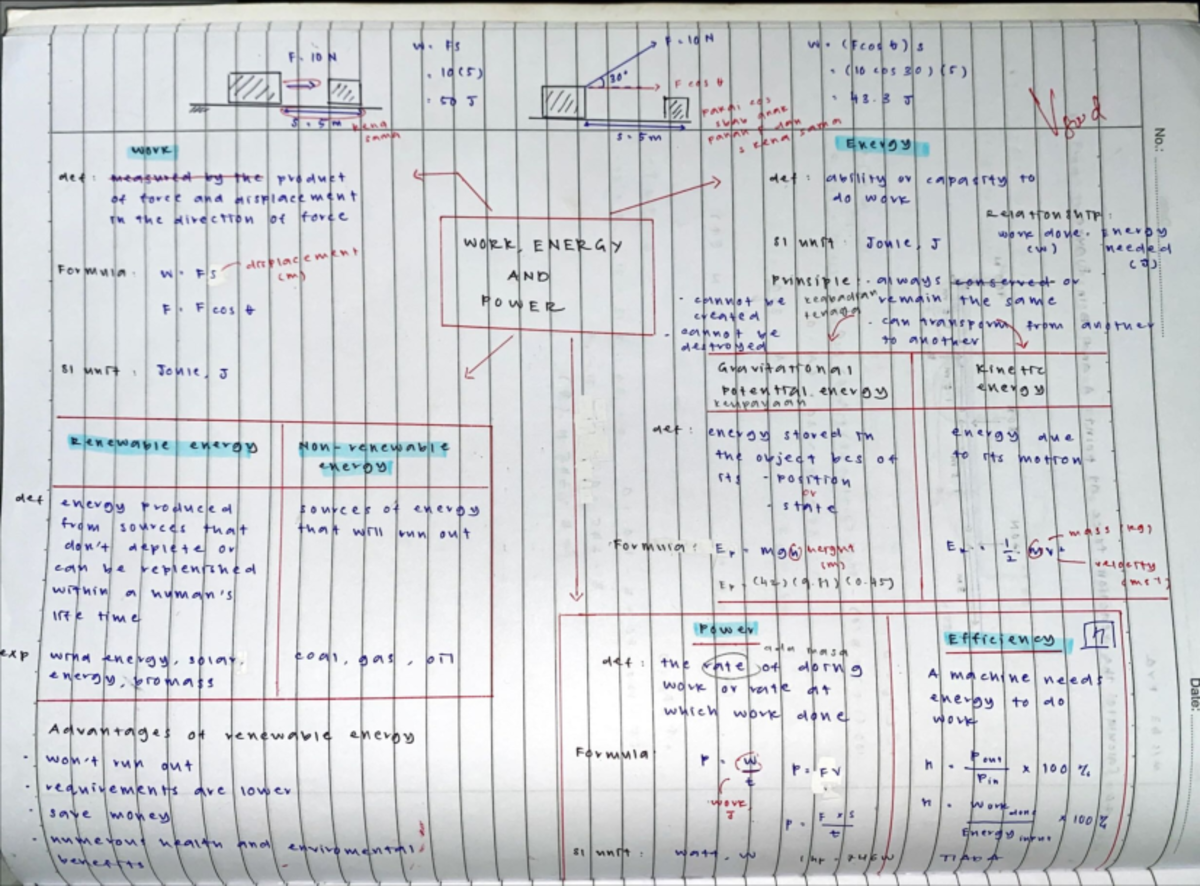 F = 10 N
S = 5 m
kena
sama
W = FS
= 10(5)
= 50 J
F = 10 N
30°
F cos θ
S = 5m
pakai cos
sbab anak
panah F dan
s kena sama
W = (F cos θ) s
= (10 cos 30) (5)
= 43.3 J
good
No.:
Date:
WORK, ENERGY
AND
POWER
Work
def : measured by the product
of force and displacement
in the direction of force
Formula : W = FS
displacement
(m)
F = F cos θ
SI unit : Joule, J
Energy
def : ability or capacity to
do work
Relationship :
work done = Energy
(W) needed
(J)
SI unit : Joule, J
Principle : always conserved or
remain the same
keabadian
tenaga
- cannot be
created
- cannot be
destroyed
- can transform from another
to another
Gravitational
Potential energy
keupayaan
Kinetic
energy
def : energy stored in
the object bcs of
its - position
or
- state
energy due
to its motion
Formula : Ep = mgh height
(m)
Ep = (42) (9.81) (0.45)
Ek = 1/2 mv²
mass (kg)
velocity
(ms⁻¹)
Renewable energy
Non-renewable
energy
def energy produced
from sources that
don't deplete or
can be replenished
within a human's
life time
sources of energy
that will run out
exp wind energy, solar
energy, biomass
coal, gas, oil
Advantages of renewable energy
- won't run out
- requirements are lower
- save money
- numerous health and enviromental
benefits
Power
ada masa
def : the rate of doing
work or rate at
which work done
Formula :
P = W/t
work
J
P = FV
P = F × S / t
SI unit : watt, W
1 hp = 746 W
Efficiency
η
A machine needs
energy to do
work
η = Pout / Pin × 100 %
η = Work done / Energy input × 100 %
TIADA